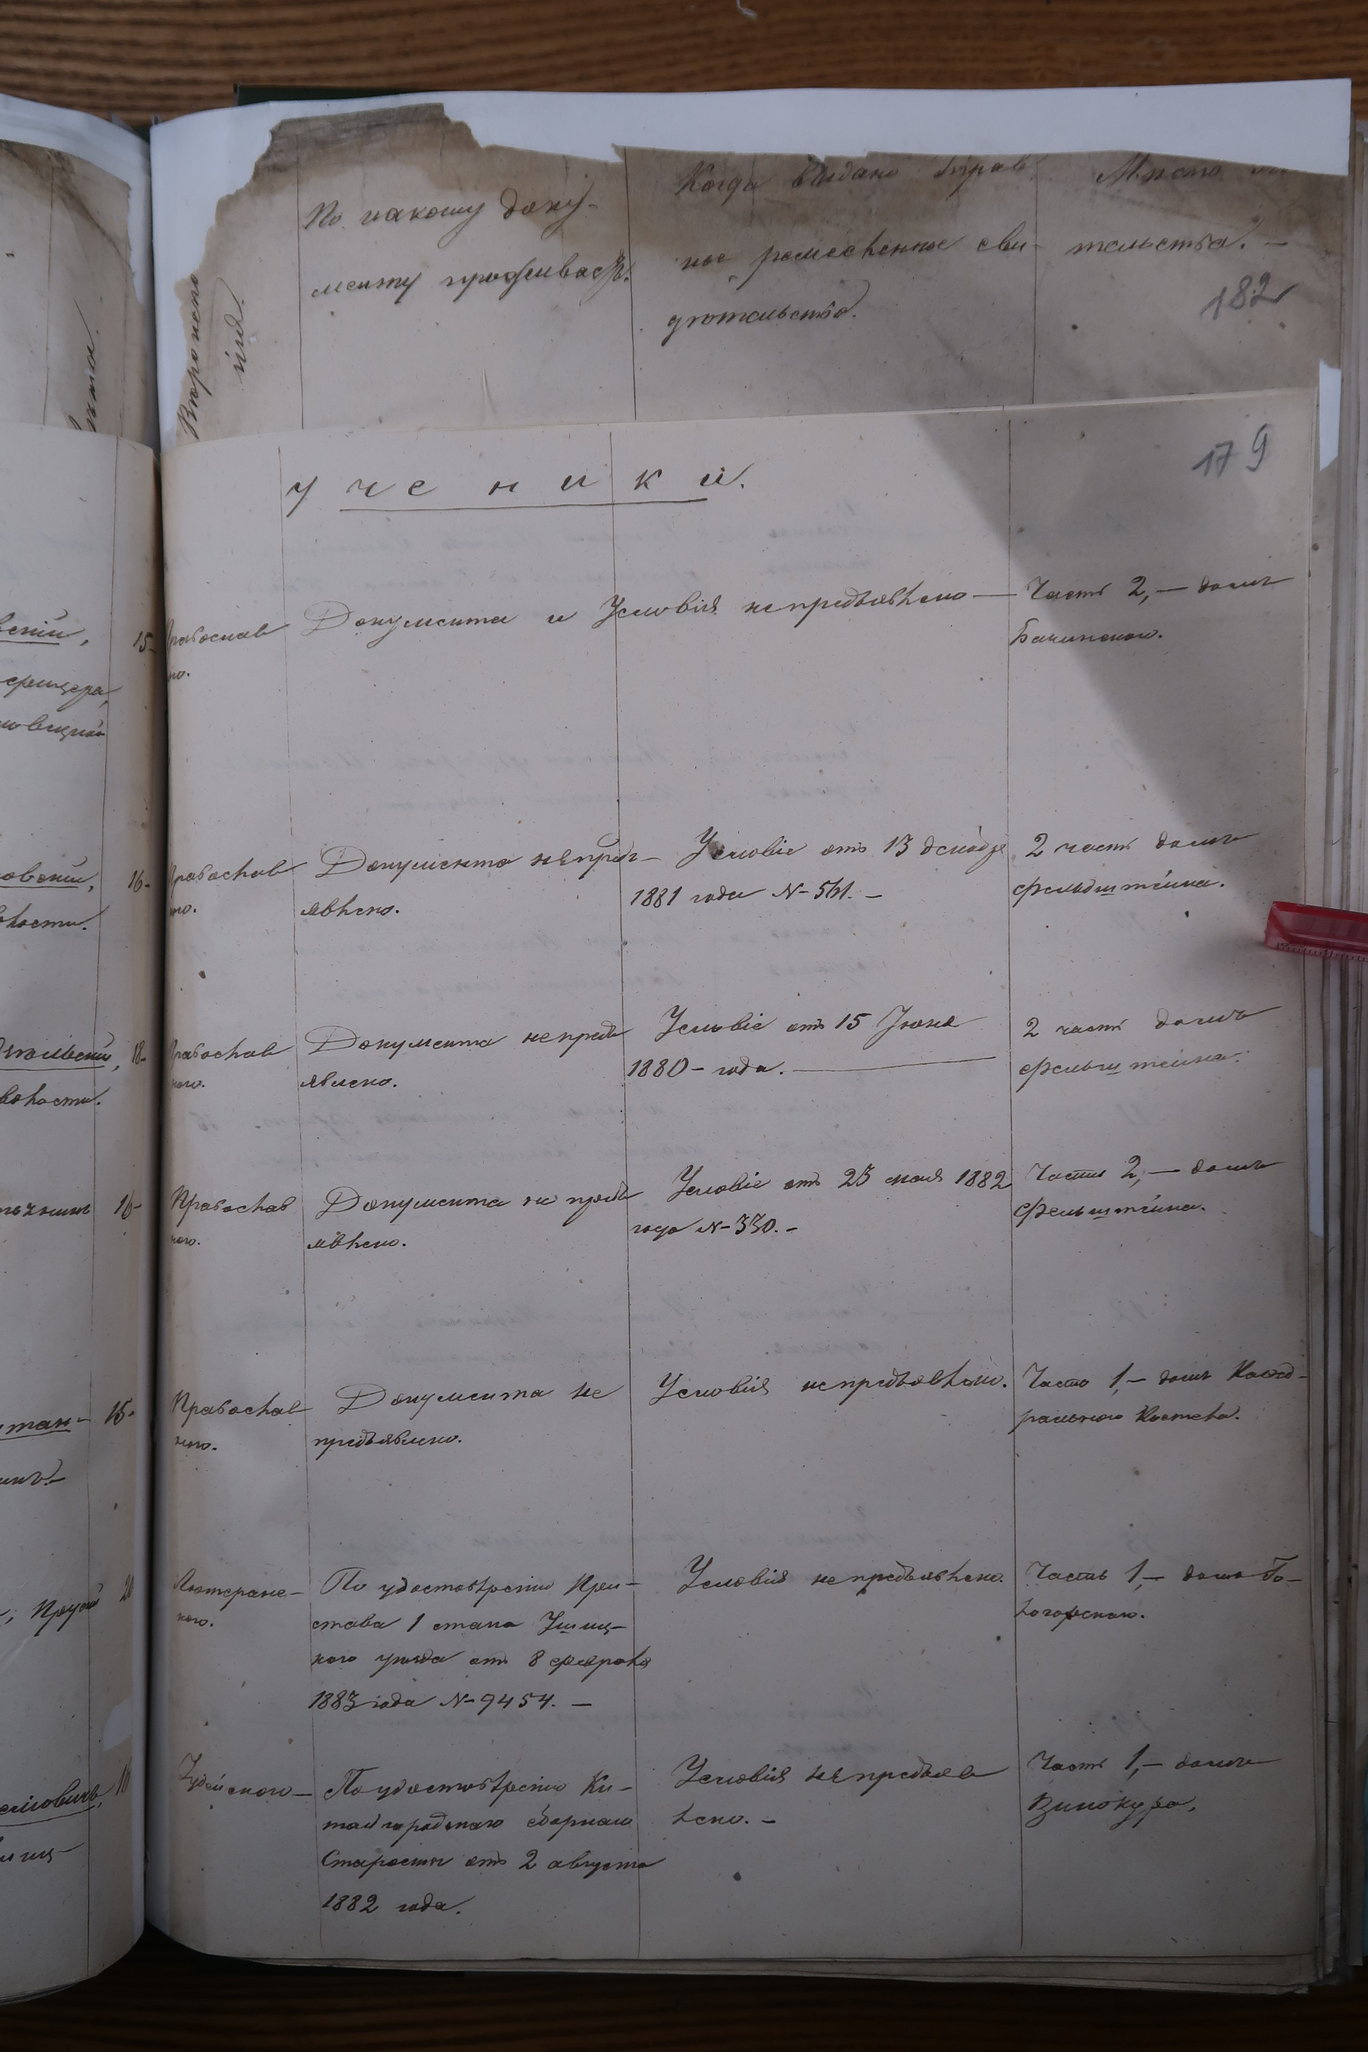 Вѣроиспо
По какому доку-
менту проживаетъ.
Когда выдано управ
ное ремесленное сви-
дѣтельство.
Мѣсто
тельства. —
182
179
ученики.
15-
Православ
но.
Документа и Условія непредъявлено —
Часть 2, — домъ
Бачинскаго.
16-
Православ
ного.
Документа непредъ-
явлено.
Условіе отъ 13 декабр
1881 года №
2 часть домъ
Фельдштейна.
18-
Православ
ного.
Документа непредъ
явлено.
Условіе отъ 15 Іюня
1880 - года.
2 часть домъ
Фельштейна.
16-
Православ
ного.
Документа не предъ
явлено.
Условіе отъ 23 мая 1882
года №-330. -
Часть 2, — домъ
Фельштейна.
15-
Православ
ного.
Документа не
предъявлено.
Условія непредъявлено.
Часть 1, - домъ Каѳед-
ральнаго Костела.
Лютеранс-
кого.
По удостовѣренію При-
става 1 стана Ушиц-
кого уѣзда отъ 8 февраля
1883 года №-9454. —
Условія непредъявлено.
Часть 1, - домъ Бо-
Іудейского —
По удостовѣренію Ки-
тайгородскаго сборнаго
Старосты отъ 2 августа
1882 года.
Условія непредъяв
лено. -
Часть 1, - домъ
Винокура.